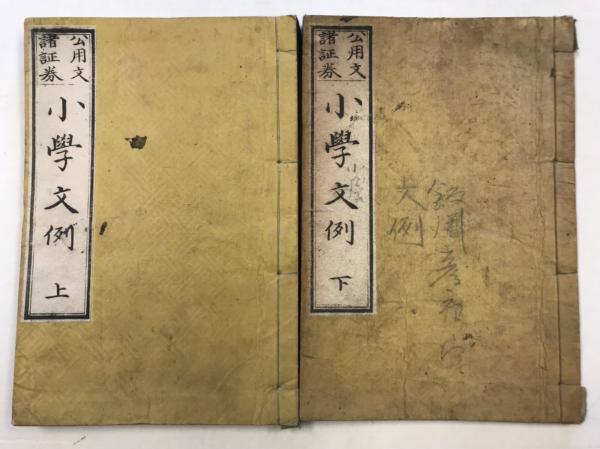 公用文
諸証券
小學文例
上
公用文
諸証券
小學文例
下
文例